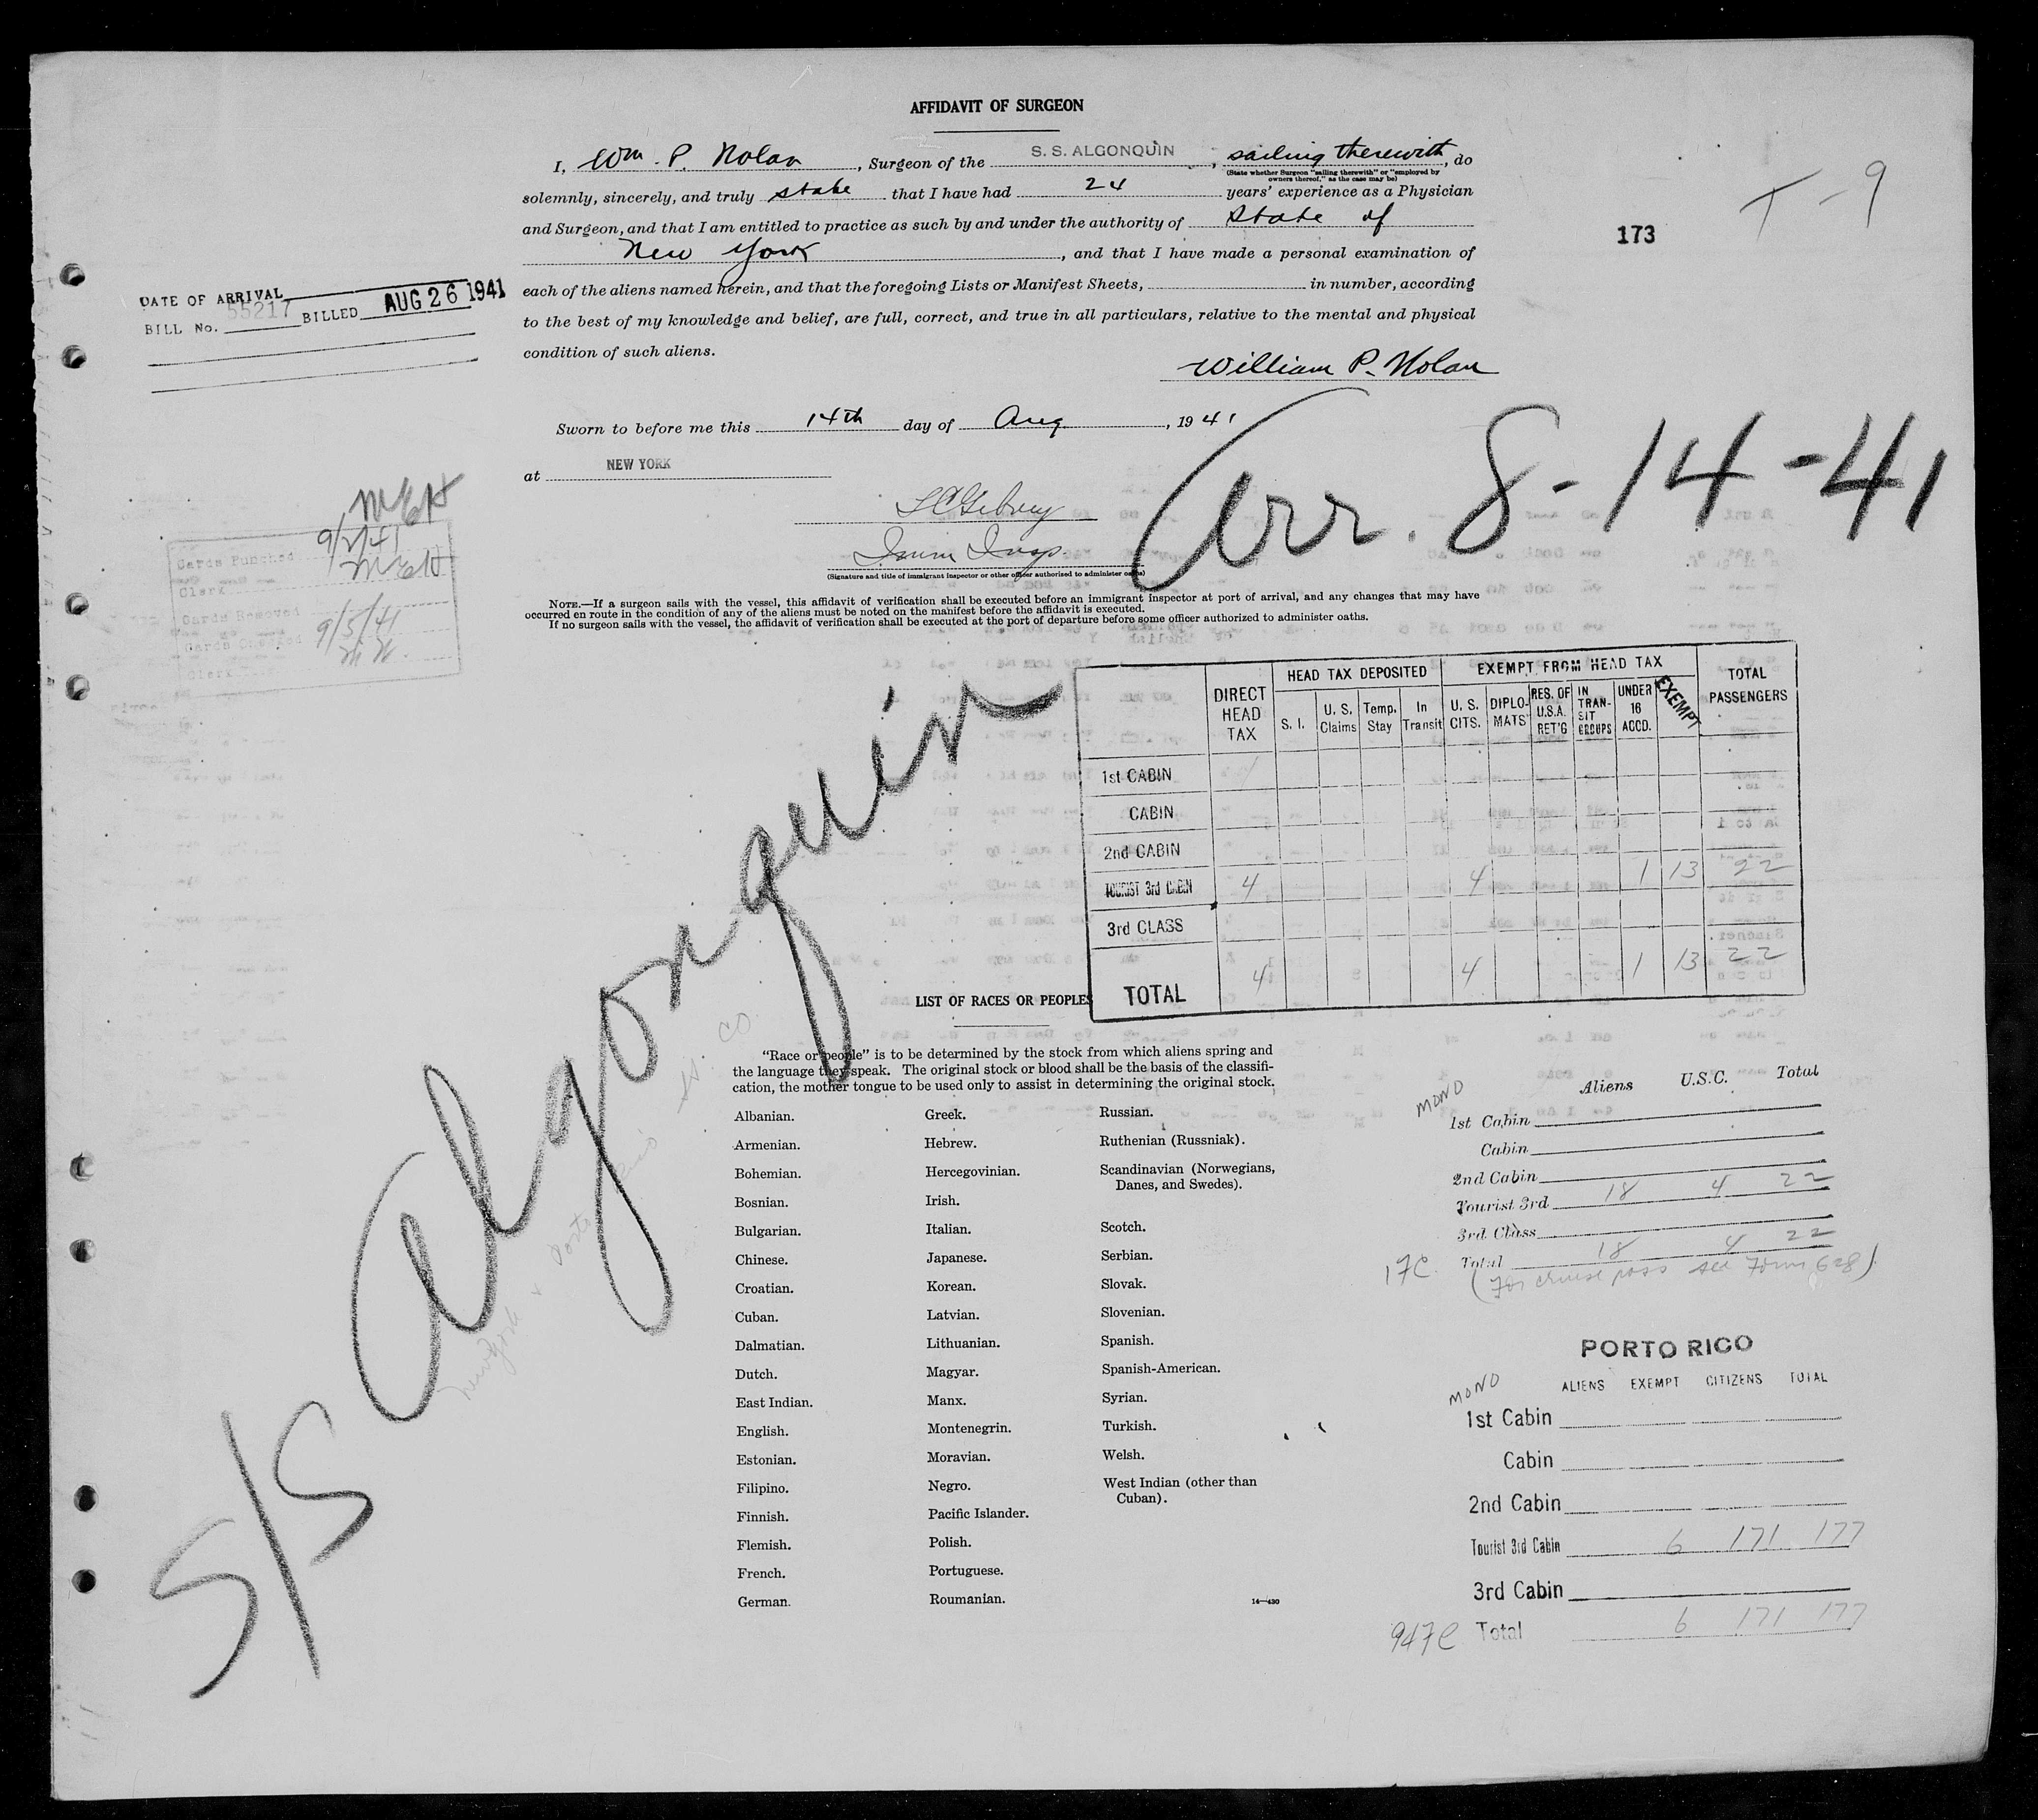 AFFIDAVIT OF SURGEON
I, Wm. P. Nolan, Surgeon of the S. S. ALGONQUIN, sailing therewith, do
(State whether Surgeon "sailing therewith" or "employed by
owners thereof," as the case may be)
solemnly, sincerely, and truly state that I have had 24 years' experience as a Physician
and Surgeon, and that I am entitled to practice as such by and under the authority of State of
New York, and that I have made a personal examination of
each of the aliens named herein, and that the foregoing Lists or Manifest Sheets, in number, according
to the best of my knowledge and belief, are full, correct, and true in all particulars, relative to the mental and physical
condition of such aliens.
William P. Nolan
T-9
173
DATE OF ARRIVAL
BILL No. 55217 BILLED AUG 26 1941
Sworn to before me this 14th day of Aug, 1941
at NEW YORK
Arr. 8-14-41
Imm Insp.
(Signature and title of immigrant inspector or other officer authorized to administer oaths)
MEH
Cards Punched 9/2/41
Clerk MEH
Cards Removed
Cards Checked 9/5/41
Clerk
NOTE.—If a surgeon sails with the vessel, this affidavit of verification shall be executed before an immigrant inspector at port of arrival, and any changes that may have
occurred en route in the condition of any of the aliens must be noted on the manifest before the affidavit is executed.
If no surgeon sails with the vessel, the affidavit of verification shall be executed at the port of departure before some officer authorized to administer oaths.
S/S Algonquin
New York & Porto Rico SS. CO.
DIRECT HEAD TAX
HEAD TAX DEPOSITED
EXEMPT FROM HEAD TAX
TOTAL PASSENGERS
S. I. U. S. Claims Temp. Stay In Transit U. S. CITS. DIPLOMATS RES. OF U.S.A. RET'G IN TRANSIT GROUPS UNDER 16 ACCD. EXEMPT
1st CABIN
CABIN
2nd CABIN
TOURIST 3rd CABIN 4 4 1 13 22
3rd CLASS
TOTAL 4 4 1 13 22
LIST OF RACES OR PEOPLES
"Race or people" is to be determined by the stock from which aliens spring and
the language they speak. The original stock or blood shall be the basis of the classifi-
cation, the mother tongue to be used only to assist in determining the original stock.
Albanian.
Armenian.
Bohemian.
Bosnian.
Bulgarian.
Chinese.
Croatian.
Cuban.
Dalmatian.
Dutch.
East Indian.
English.
Estonian.
Filipino.
Finnish.
Flemish.
French.
German.
Greek.
Hebrew.
Hercegovinian.
Irish.
Italian.
Japanese.
Korean.
Latvian.
Lithuanian.
Magyar.
Manx.
Montenegrin.
Moravian.
Negro.
Pacific Islander.
Polish.
Portuguese.
Roumanian.
Russian.
Ruthenian (Russniak).
Scandinavian (Norwegians,
Danes, and Swedes).
Scotch.
Serbian.
Slovak.
Slovenian.
Spanish.
Spanish-American.
Syrian.
Turkish.
Welsh.
West Indian (other than
Cuban).
14—430
MONO
Aliens U.S.C. Total
1st Cabin
Cabin
2nd Cabin
Tourist 3rd 18 4 22
3rd Class
17C. Total 18 4 22
(For cruise pass see Form 628)
PORTO RICO
MONO
ALIENS EXEMPT CITIZENS TOTAL
1st Cabin
Cabin
2nd Cabin
Tourist 3rd Cabin 6 171 177
3rd Cabin
947C Total 6 171 177